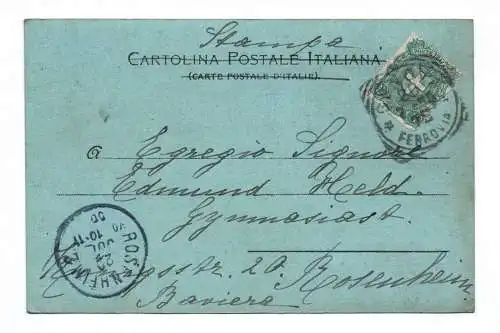 Stampa
CARTOLINA POSTALE ITALIANA
(CARTE POSTALE D'ITALIE).
FERROVIA
a Egregio Signore
Edmund Held
Gymnasiast.
20. Rosenheim
Baviera
ROSENHEIM
JUL
10-11
00